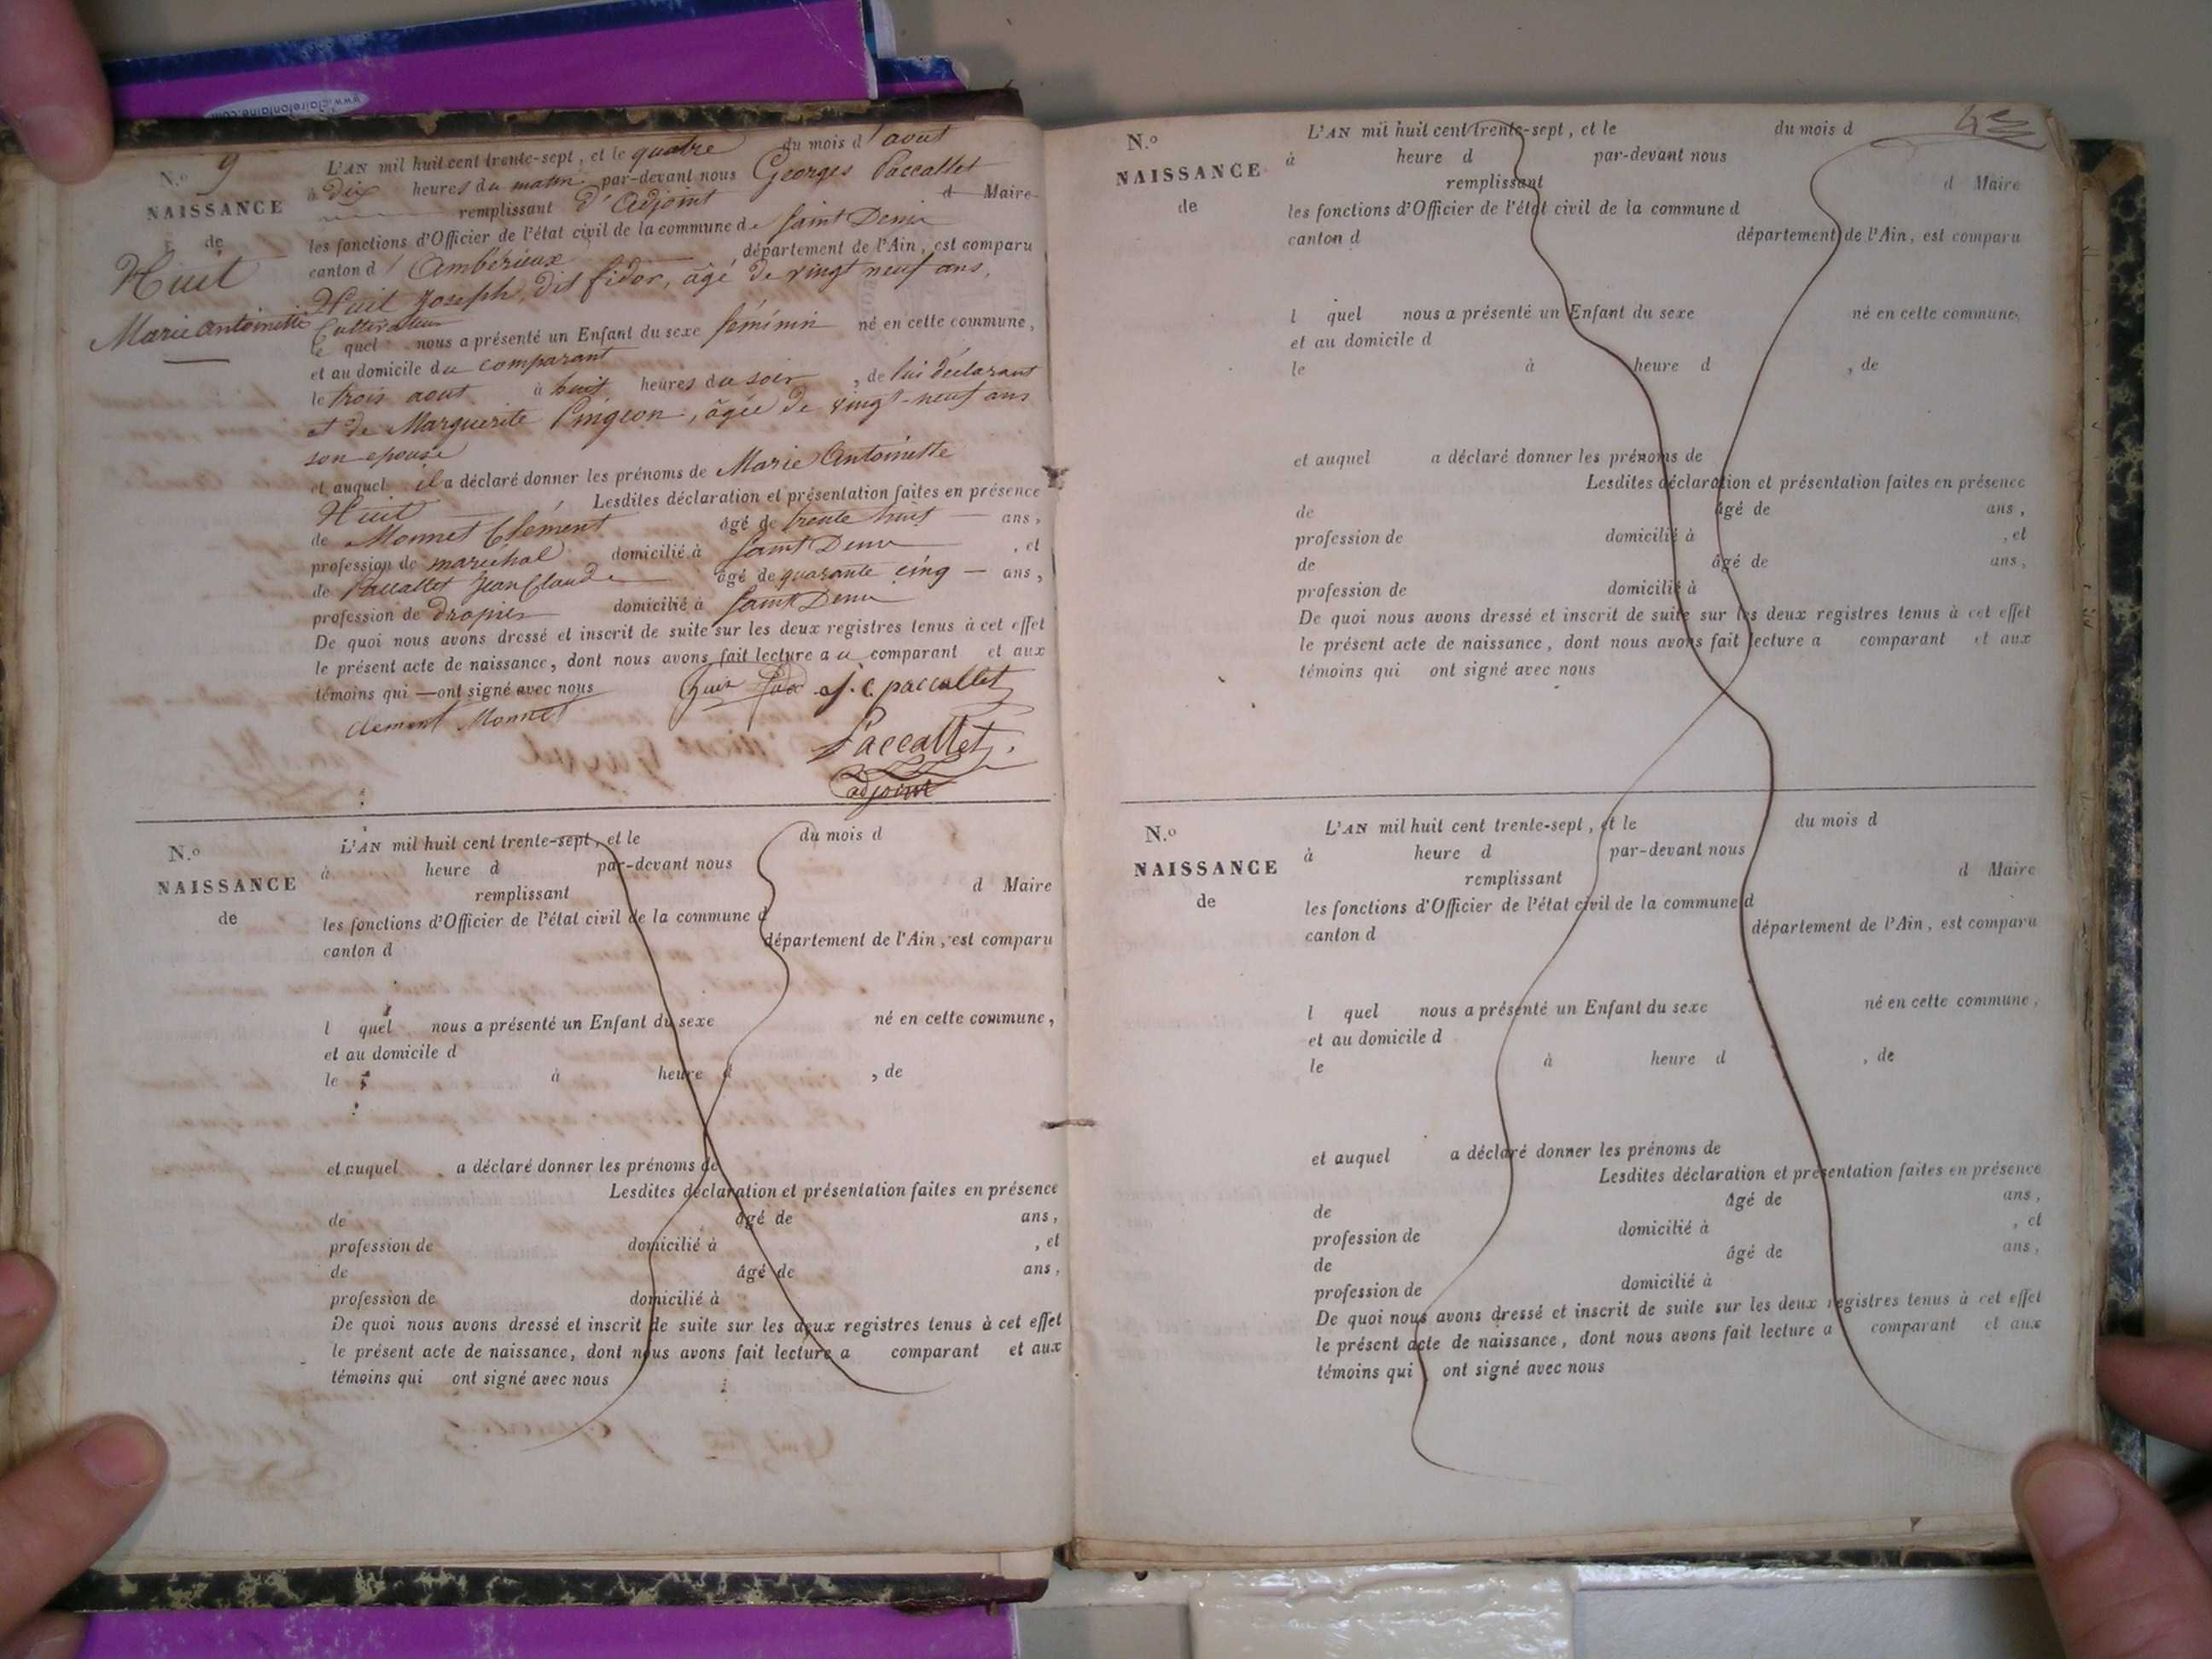 www.clairefontaine.com
N.º 9
NAISSANCE
de
Huit
Marie Antoinette
L'AN mil huit cent trente-sept, et le quatre du mois d'aout
à Dix heures du matin par-devant nous Georges Paccallet
remplissant d'adjoint d Maire
les fonctions d'Officier de l'état civil de la commune de Saint Denis
canton d'Ambérieux département de l'Ain, est comparu
Huit Joseph, dit fidor, âgé de vingt neuf ans,
Cultivateur
le quel nous a présenté un Enfant du sexe féminin né en cette commune,
et au domicile du comparant
le trois aout à huit heures du soir, de lui déclarant
et de Marguerite Pingeon, âgée de vingt-neuf ans
son epouse
et auquel il a déclaré donner les prénoms de Marie Antoinette
Huit Lesdites déclaration et présentation faites en présence
de Monnet Clément âgé de trente huit ans,
profession de maréchal domicilié à Saint Denis, et
de Paccallet Jean Claude âgé de quarante cinq ans,
profession de drapier domicilié à Saint Denis
De quoi nous avons dressé et inscrit de suite sur les deux registres tenus à cet effet
le présent acte de naissance, dont nous avons fait lecture au comparant et aux
témoins qui ont signé avec nous
J. C. paccallet
clement Monnet
Paccallet
adjoint
N.º
NAISSANCE
de
L'AN mil huit cent trente-sept, et le du mois d
à heure d par-devant nous
remplissant d Maire
les fonctions d'Officier de l'état civil de la commune d
canton d département de l'Ain, est comparu
l quel nous a présenté un Enfant du sexe né en cette commune,
et au domicile d
le à heure d , de
et auquel a déclaré donner les prénoms de
Lesdites déclaration et présentation faites en présence
de âgé de ans,
profession de domicilié à , et
de âgé de ans,
profession de domicilié à
De quoi nous avons dressé et inscrit de suite sur les deux registres tenus à cet effet
le présent acte de naissance, dont nous avons fait lecture a comparant et aux
témoins qui ont signé avec nous
N.º
NAISSANCE
de
L'AN mil huit cent trente-sept, et le du mois d
à heure d par-devant nous
remplissant d Maire
les fonctions d'Officier de l'état civil de la commune d
canton d département de l'Ain, est comparu
l quel nous a présenté un Enfant du sexe né en cette commune,
et au domicile d
le à heure d , de
et auquel a déclaré donner les prénoms de
Lesdites déclaration et présentation faites en présence
de âgé de ans,
profession de domicilié à , et
de âgé de ans,
profession de domicilié à
De quoi nous avons dressé et inscrit de suite sur les deux registres tenus à cet effet
le présent acte de naissance, dont nous avons fait lecture a comparant et aux
témoins qui ont signé avec nous
N.º
NAISSANCE
de
L'AN mil huit cent trente-sept, et le du mois d
à heure d par-devant nous
remplissant d Maire
les fonctions d'Officier de l'état civil de la commune d
canton d département de l'Ain, est comparu
l quel nous a présenté un Enfant du sexe né en cette commune,
et au domicile d
le à heure d , de
et auquel a déclaré donner les prénoms de
Lesdites déclaration et présentation faites en présence
de âgé de ans,
profession de domicilié à , et
de âgé de ans,
profession de domicilié à
De quoi nous avons dressé et inscrit de suite sur les deux registres tenus à cet effet
le présent acte de naissance, dont nous avons fait lecture a comparant et aux
témoins qui ont signé avec nous